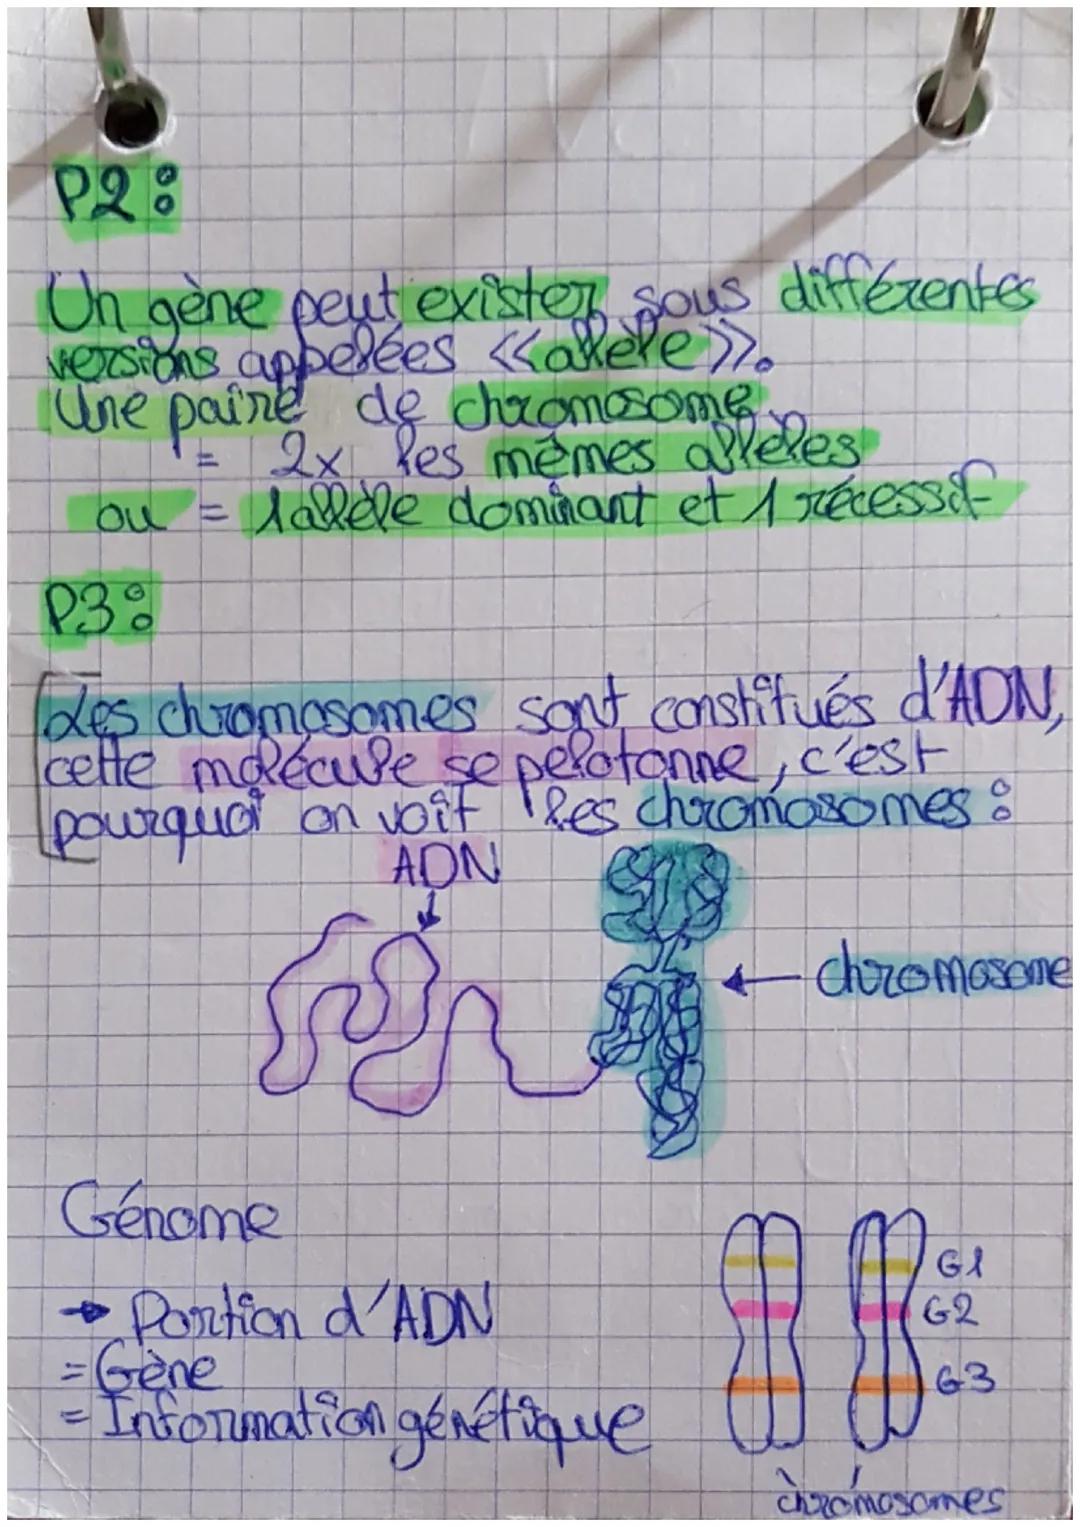 P2:
Un gène peut exister sous différentes
versions appelées <<allèle>>.
Une paire de chromosome
= 2x les mêmes allèles
ou = 1 allèle dominant et 1 récessif
P3:
Les chromosomes sont constitués d'ADN,
cette molécule se pelotonne, c'est
pourquoi on voit les chromosomes:
ADN
chromosome
Génome
G1
→ Portion d'ADN
G2
= Gène
G3
= Information génétique
chromosomes